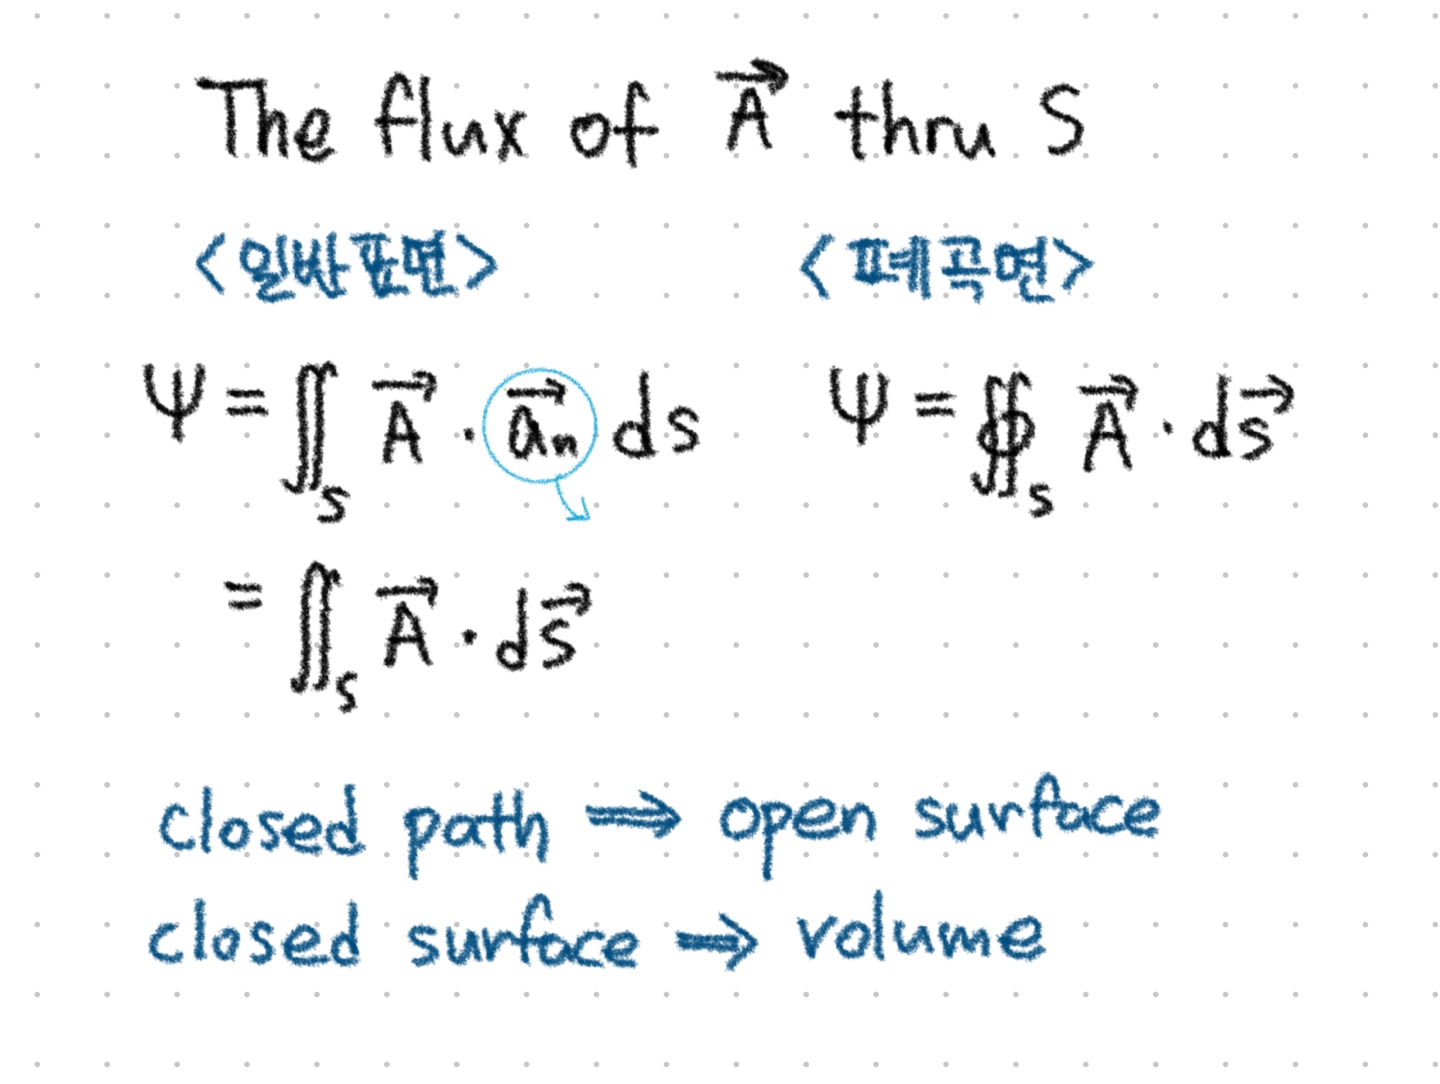 The flux of A⃗ thru S
<일반표면> <폐곡면>
Ψ = ∬_S A⃗ · a⃗ₙ ds Ψ = ∯_S A⃗ · ds⃗
= ∬_S A⃗ · ds⃗
closed path ⇒ open surface
closed surface ⇒ volume